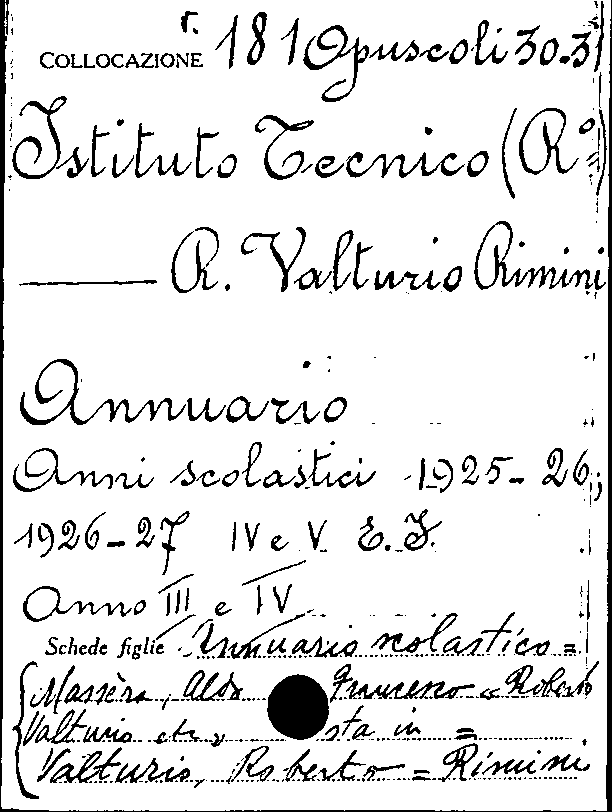 COLLOCAZIONE r. 181 Opuscoli 30.31
Istituto Tecnico (Rº=)
—— R. Valturio Rimini
Annuario
Anni scolastici 1925-26;
1926-27 IV e V E. F.
Anno III e IV
Schede figlie Annuario scolastico =
Massèra, Aldo Francesco « Roberto
Valturio etc » sta in =
Valturio, Roberto = Rimini